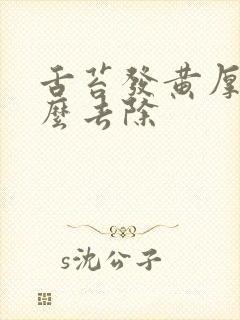 舌苔發黄厚
麼去除
s沈公子